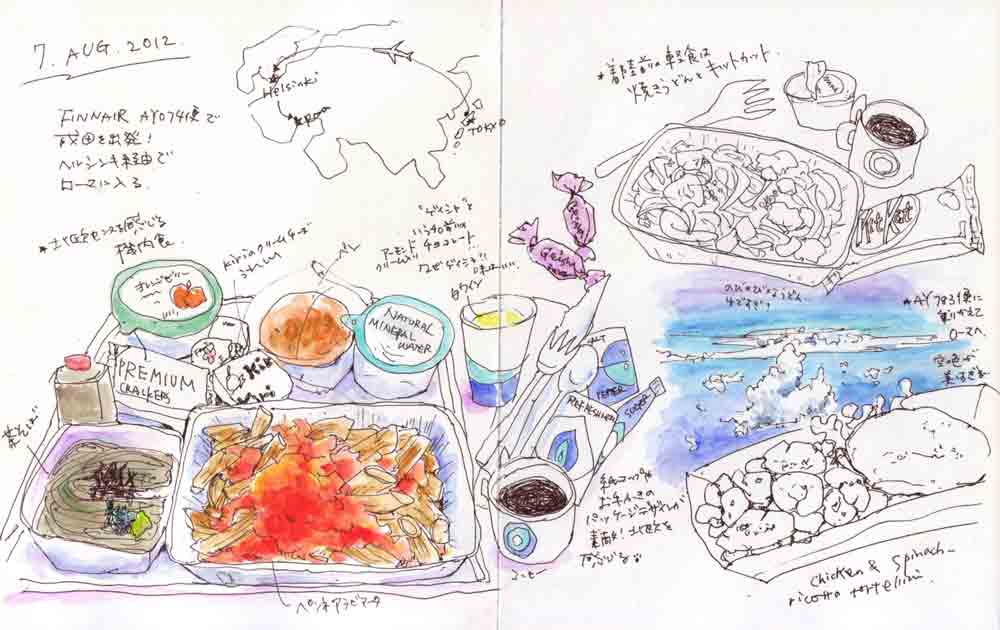 7. AUG. 2012.
Helsinki
Roma
TOKYO
FINNAIR AY074便で
成田を出発!
ヘルシンキ経由で
ローマに入る.
*北欧センスを感じる
機内食.
kiriのクリームチーズ
うれしい
パン
"ゲイシャ"と
いう名前の
アーモンド チョコレート
クリーム入り
なぜゲイシャ!!
白ワイン
オレンジゼリー
PREMIUM
CRACKERS
kiri
kiri
NATURAL
MINERAL
WATER
Geisha
SALT
PEPPER
REFRESHING
SUGAR
茶そば
ペンネアラビアータ
コーヒー
紙コップや
お手ふきの
パッケージデザインが
素敵! 北欧を
感じる
*着陸前の軽食は
焼きうどんとキットカット
Kit Kat
のびのびなうどん.
*AY783便に
乗りかえて
ローマへ
空色が
美しすぎる
chicken & spinach-
ricotta tortellini.